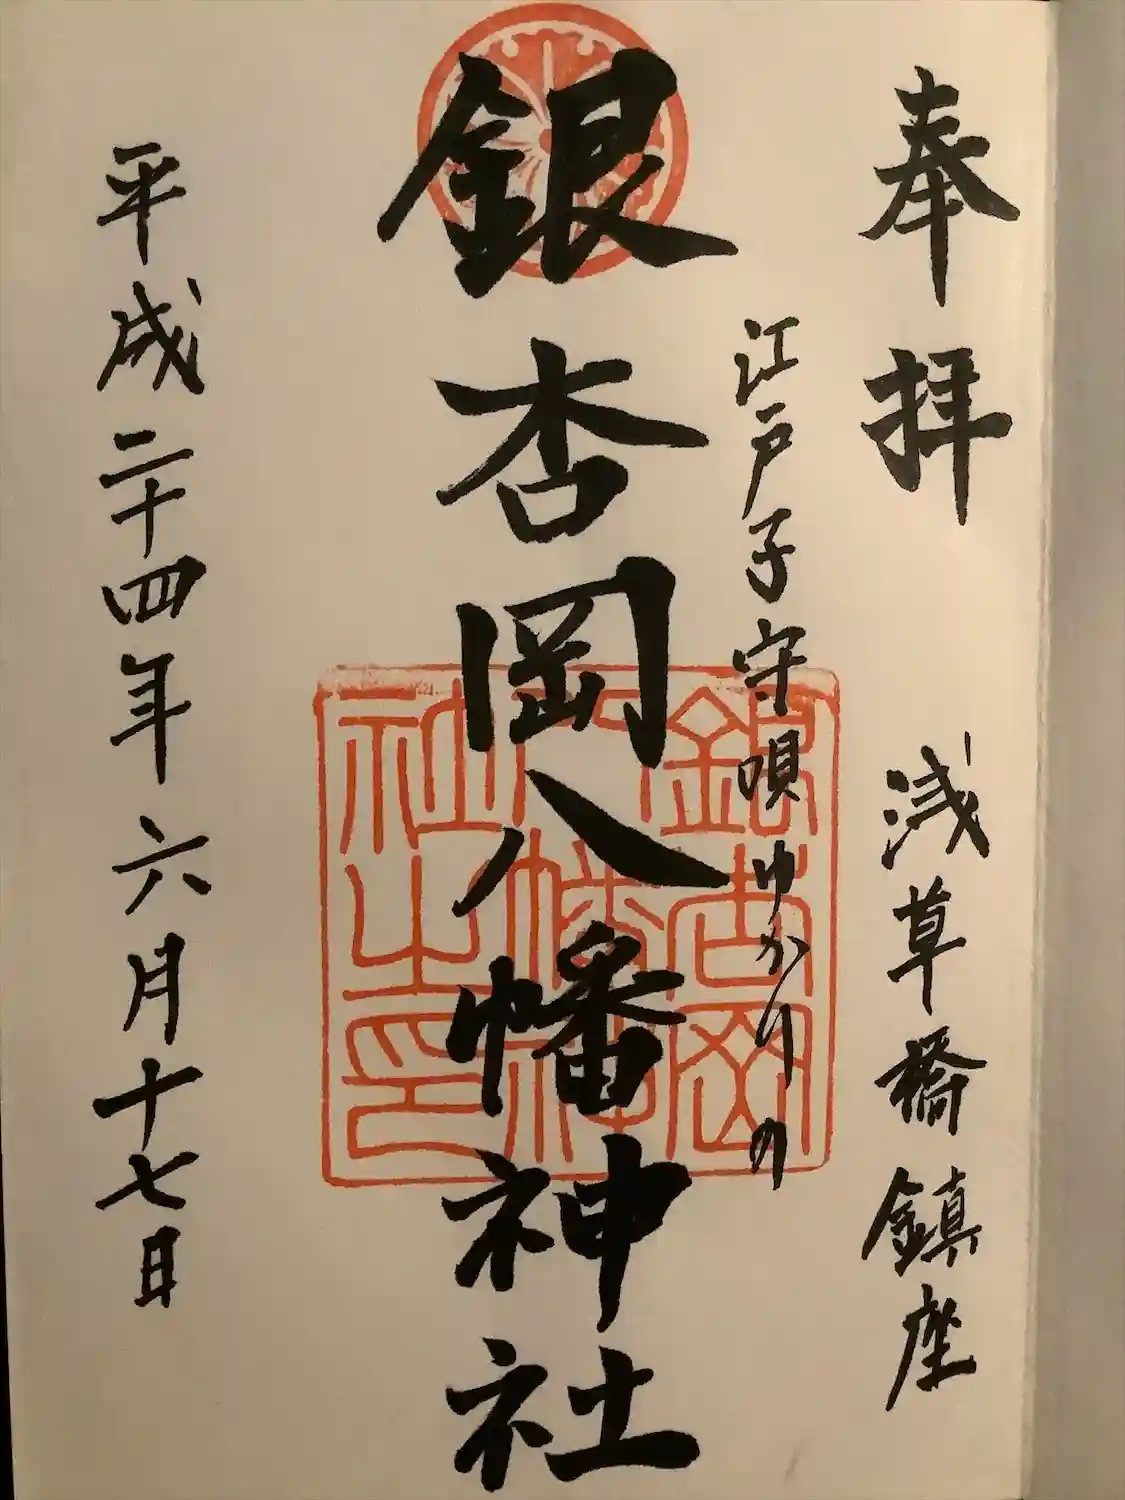 奉拝
浅草橋鎮座
江戸子守唄ゆかりの
銀杏岡八幡神社
銀杏岡八幡神社之印
平成二十四年六月十七日